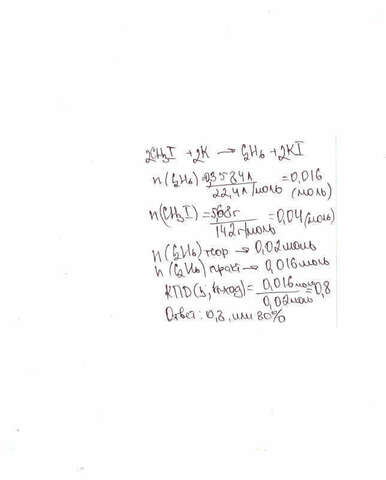 2CH3I + 2K → C2H6 + 2KI
n(C2H6) = 0,3584л / 22,4л/моль = 0,016 (моль)
n(CH3I) = 5,68г / 142г/моль = 0,04 (моль)
n(C2H6) теор → 0,02 моль
n(C2H6) практ → 0,016 моль
КПД( выход) = 0,016 моль / 0,02 моль = 0,8
Ответ: 0,8, или 80%